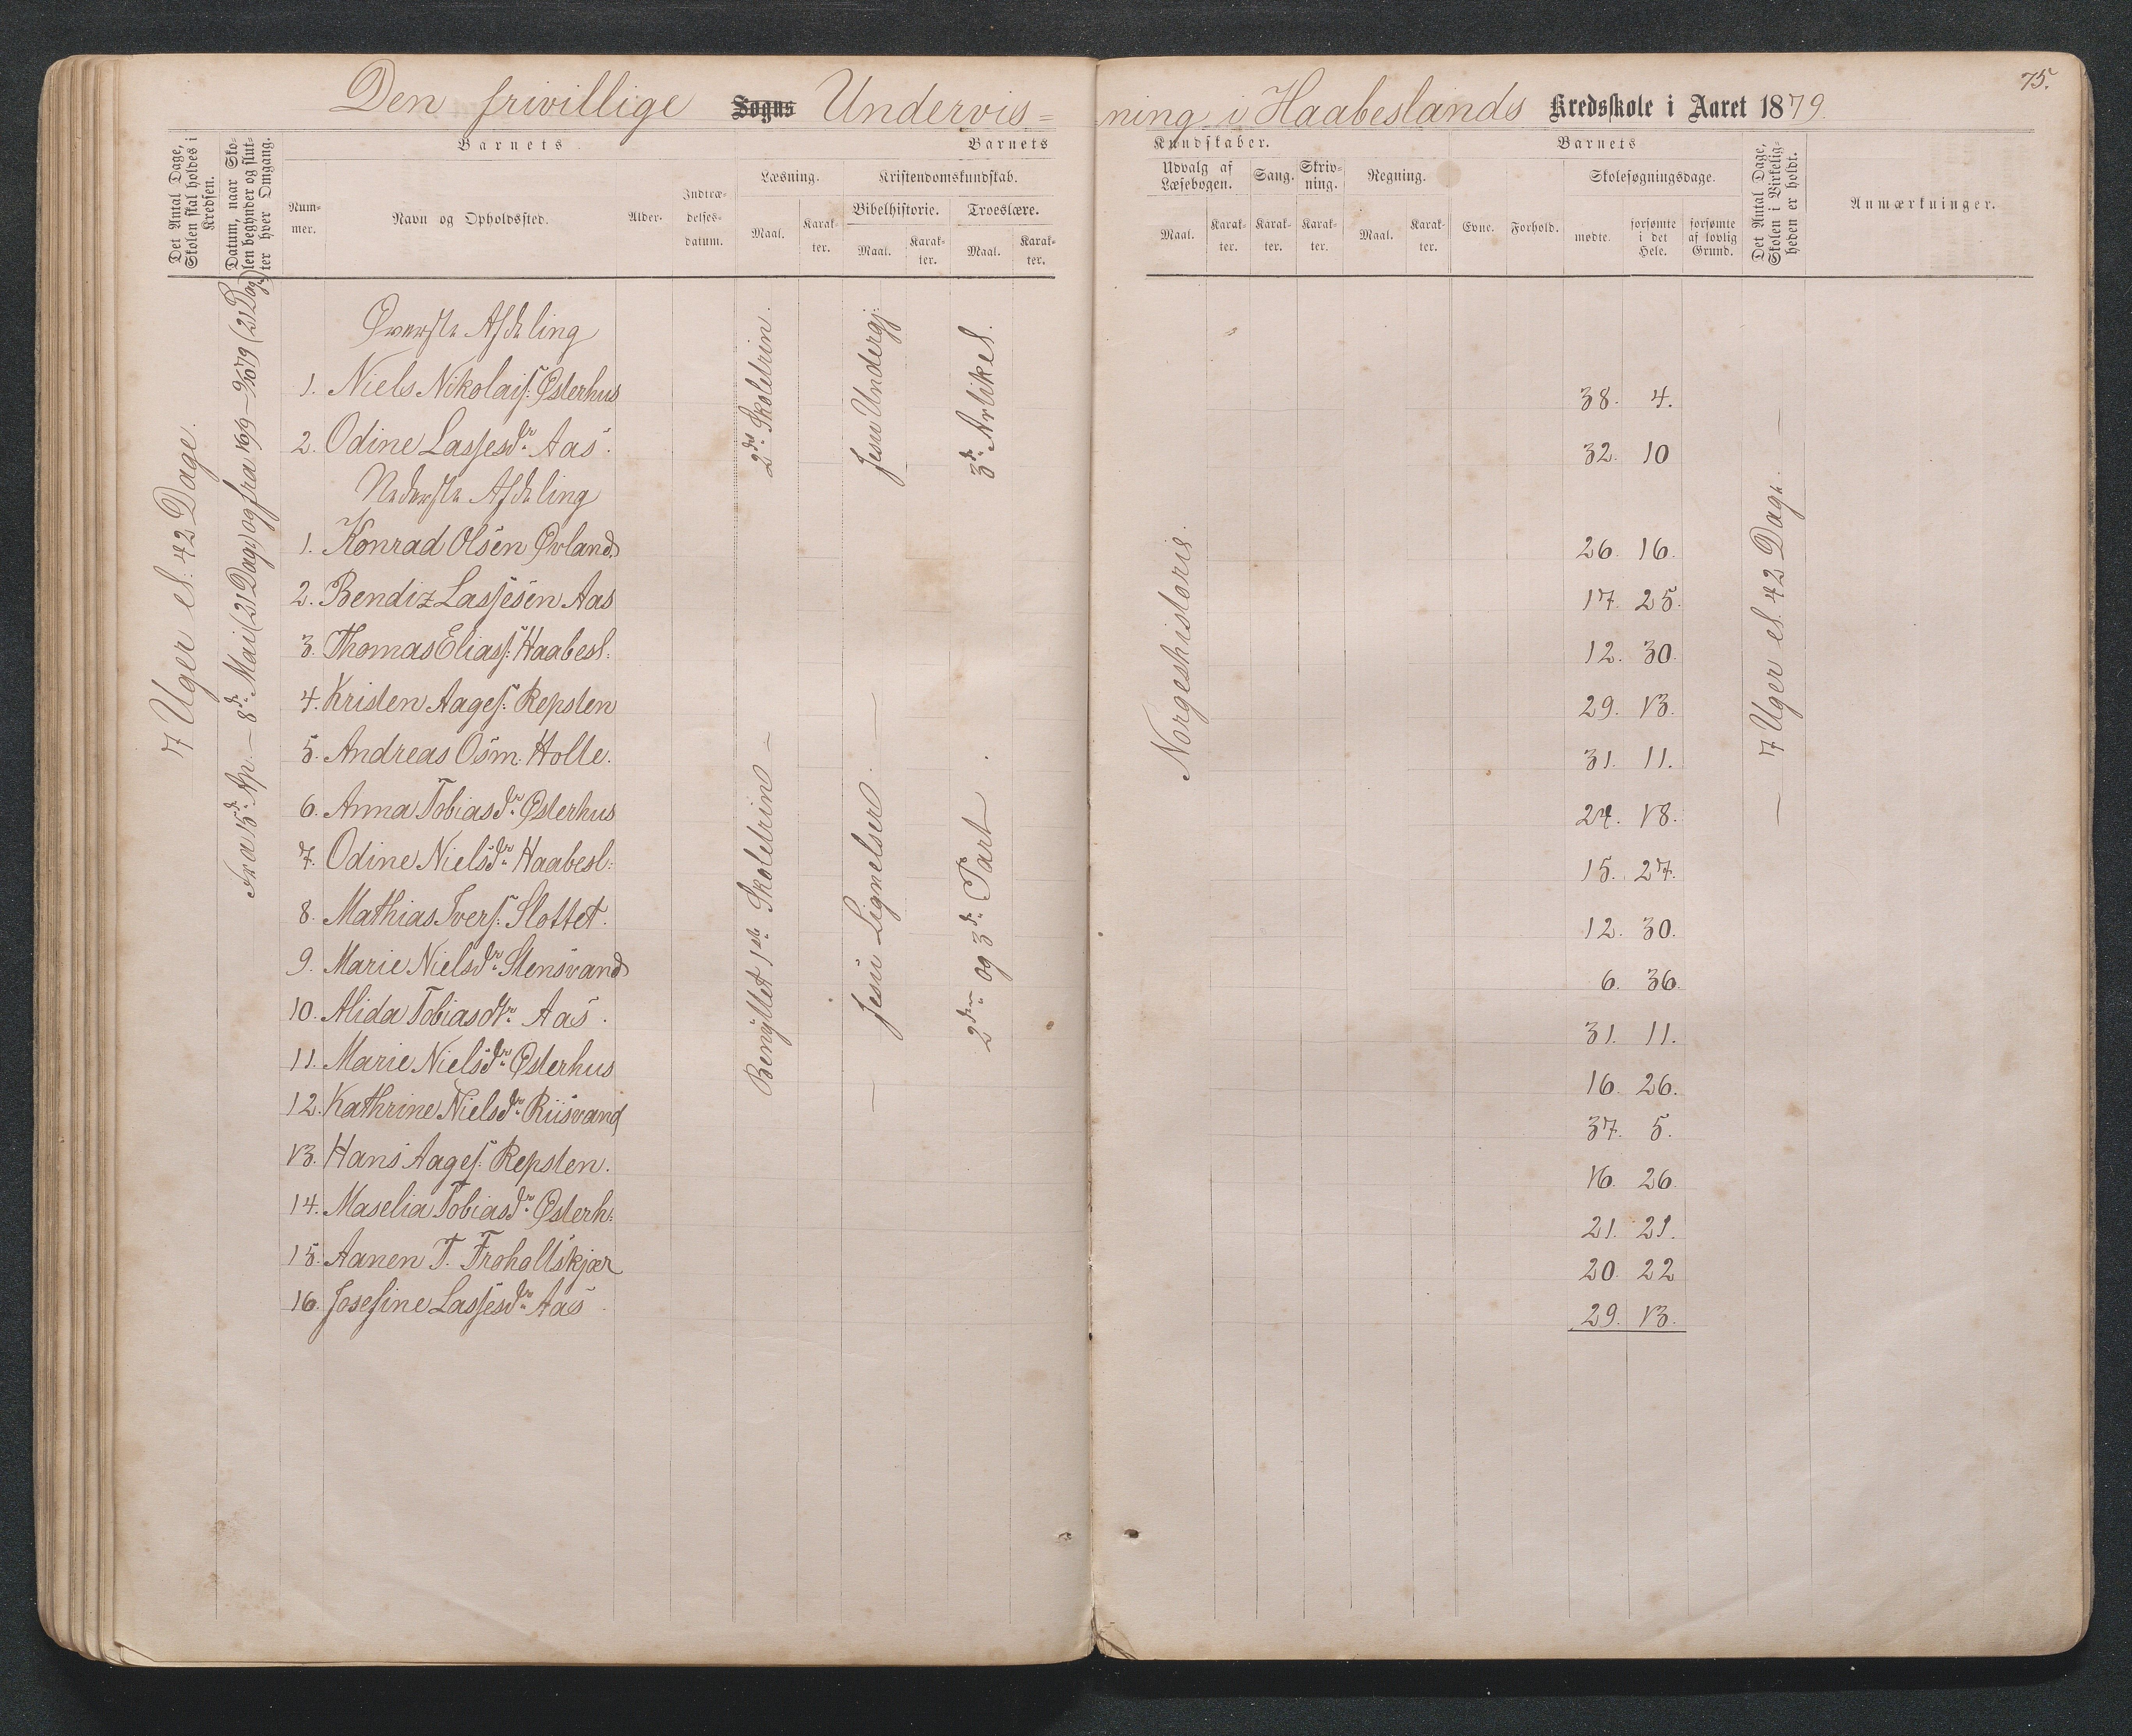 75.
Den frivillige Sogns Undervis= ning i Haabeslands Kredsskole i Aaret 1879.
Det Antal Dage, Skolen skal holdes i Kredsen.
Datum, naar Skolen begynder og slutter hver Omgang.
Barnets
Nummer.
Navn og Opholdssted.
Alder.
Indtrædelsesdatum.
Barnets Kundskaber.
Læsning.
Maal.
Karakter.
Kristendomskundskab.
Bibelhistorie.
Maal.
Karakter.
Troeslære.
Maal.
Karakter.
Udvalg af Læsebogen.
Maal.
Karakter.
Sang.
Karakter.
Skrivning.
Karakter.
Regning.
Maal.
Karakter.
Barnets
Evne.
Forhold.
Skolesøgningsdage.
mødte.
forsømte i det Hele.
forsømte af lovlig Grund.
Det Antal Dage, Skolen i Virkeligheden er holdt.
Anmærkninger.
7 Uger el. 42 Dage.
Fra 15de Ap. – 8de Mai (21 Dage) og fra 16/9 – 9/10 79 (21 Dage)
Øverste Afdeling
1. Niels Nikolais. Østerhus 38. 4.
2. Odine Lassesdr. Aas. 32. 10
2det Skoletrin.
Jesu Undergj.
3de Artikel.
Nederste Afdeling
1. Konrad Olsen Øvland 26. 16.
2. Bendiz Lassesen Aas 17. 25.
3. Thomas Elias. Haabesl. 12. 30.
4. Kristen Aages. Repsten 29. 13.
5. Andreas Osm. Holte. 31. 11.
6. Anna Tobiasdr. Østerhus 24. 18.
7. Odine Nielsdr. Haabesl: 15. 27.
8. Mathias Ivers. Slottet. 12. 30.
9. Marie Nielsdr. Stensvand 6. 36.
10. Alida Tobiasdtr. Aas. 31. 11.
11. Marie Nielsdr. Østerhus 16. 26.
12. Kathrine Nielsdr. Riisvand 37. 5.
13. Hans Aages. Repsten. 16. 26
14. Maselia Tobiasdr. Østerh: 21. 21.
15. Aanen T. Froholtskjær 20. 22
16. Josefine Lassesdr. Aas. 29. 13.
Benyttet 1ste Skoletrin –
– Jesu Lignelser. –
2den og 3de Part.
Norgeshistorie.
– 7 Uger el. 42 Dage. –